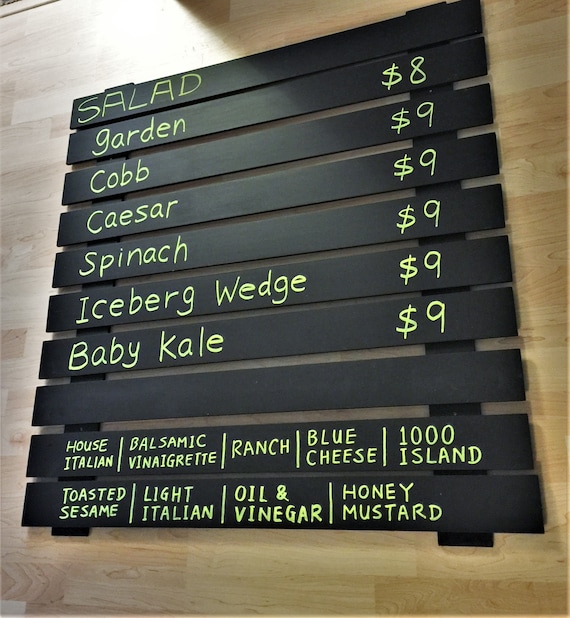 SALAD
garden $8
Cobb $9
Caesar $9
Spinach $9
Iceberg Wedge $9
Baby Kale $9
HOUSE ITALIAN | BALSAMIC VINAIGRETTE | RANCH | BLUE CHEESE | 1000 ISLAND
TOASTED SESAME | LIGHT ITALIAN | OIL & VINEGAR | HONEY MUSTARD